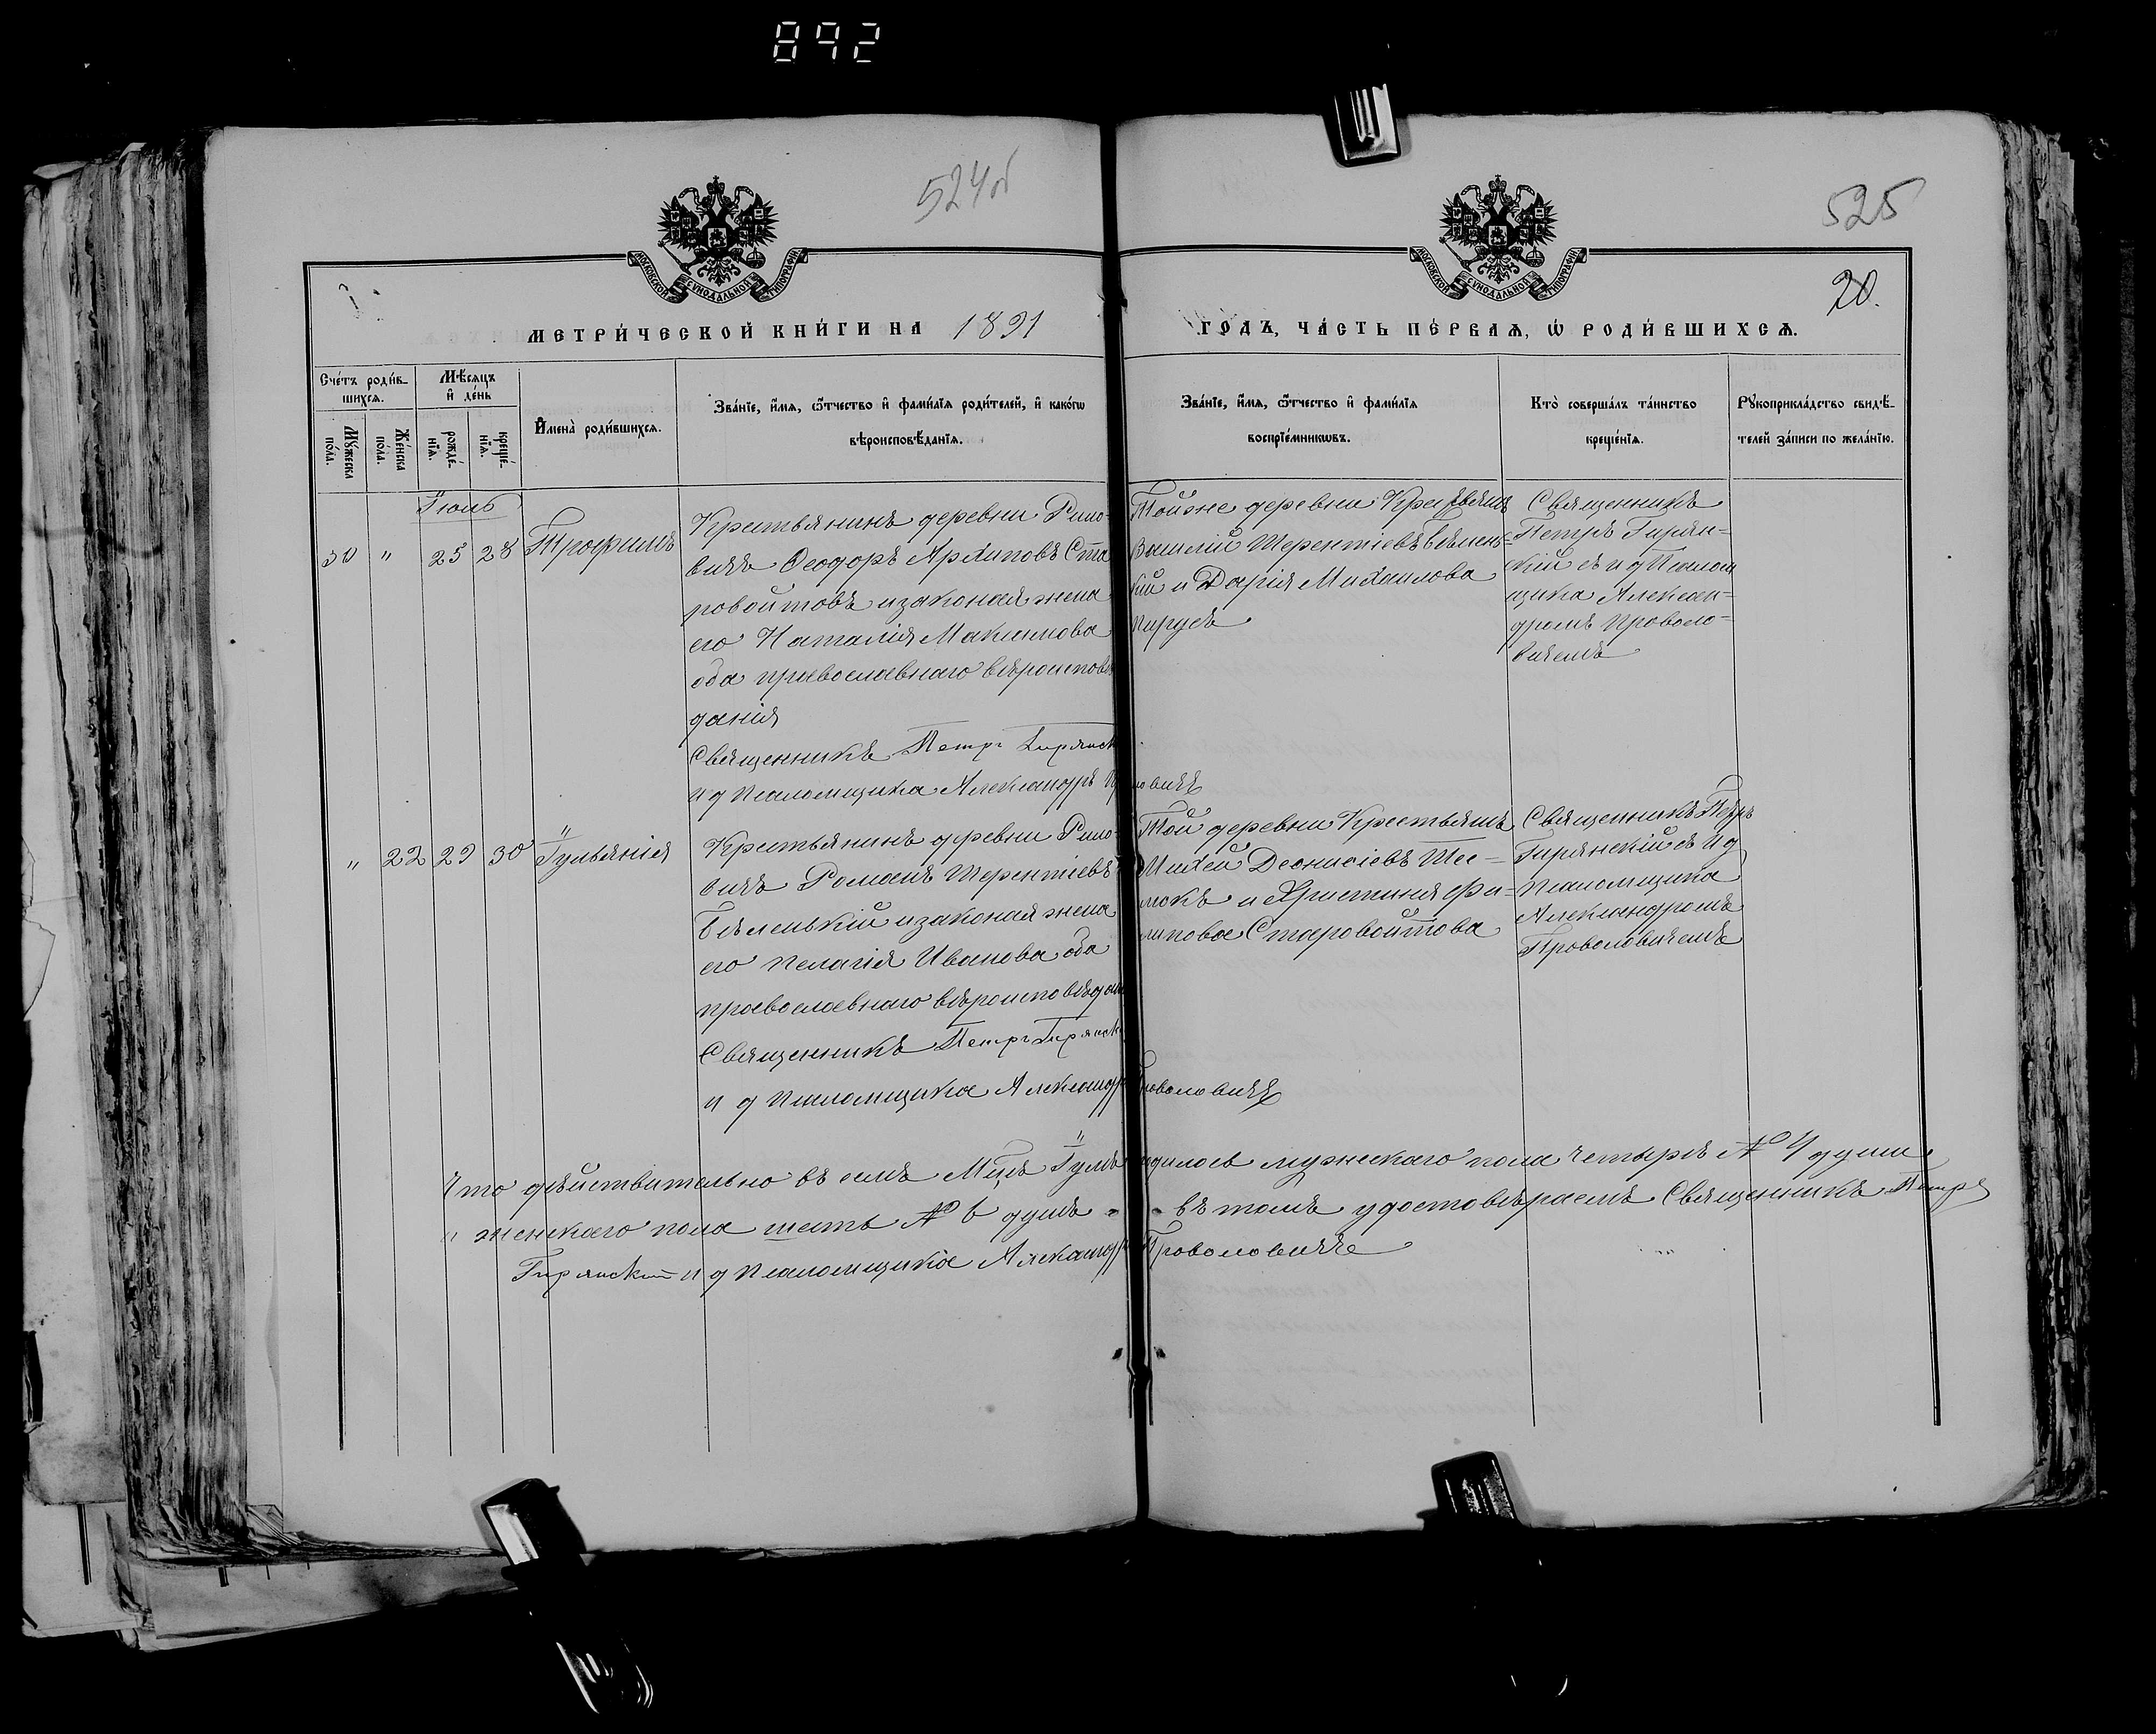 892
524об
525
20.
МОСКОВСКОЙ СѴНОДАЛЬНОЙ ТИПОГРАФІИ
МОСКОВСКОЙ СѴНОДАЛЬНОЙ ТИПОГРАФІИ
МЕТРИ́ЧЕСКОЙ КНИ́ГИ НА 1891
ГОДЪ, ЧА́СТЬ ПЕ́РВАѦ, Ѡ҆ РОДИ́ВШИХСѦ.
Сче́тъ роди́в-
шихсѧ.
Мѣ́сѧцъ
и҆ де́нь
Мꙋ́жеска
по́ла.
Же́нска
по́ла.
рожде́-
нїѧ.
креще́-
нїѧ.
И҆мена̀ роди́вшихсѧ.
Зва́нїе, и҆́мѧ, ѻ҆́тчество и҆ фами́лїѧ роди́телей, и҆ како́гѡ
вѣроисповѣ́данїѧ.
Зва́нїе, и҆́мѧ, ѻ҆́тчество и҆ фами́лїѧ
воспрїе́мникѡвъ.
Кто̀ соверша́лъ та́инство
креще́нїѧ.
Рꙋкоприкла́дство свидѣ́-
телей за́писи по жела́нїю.
Іюль
30 " 25 28 Трофимъ
Крестьянинъ деревни Рило-
вичъ Ѳеодоръ Архиповъ Ста
ровойтовъ и законая жена
его Наталія Максимова
оба православнаго вѣроисповѣ
данія
Священникъ Петръ Гирянск
и д псаломщика Александръ Проволовичъ
Тойже деревни Крестьянъ
Василій Терентіевъ Бѣлень-
кій и Дарія Михаилова
Пирусъ
Священникъ
Петръ Гирян-
скій съ и д Псалом
щика Алексан-
дромъ Проволо-
вичемъ
" 22 29 30 Іульянія
Крестьянинъ деревни Рило-
вичъ Романъ Терентіевъ
Бѣленькій и законая жена
его Пелагія Иванова оба
православнаго вѣроисповѣдан
Священникъ Петръ Гирянск
и д псаломщика Александръ Проволовичъ
Той деревни Крестьянъ
Михей Деонисіевъ Шес-
локъ и Христинія Фи-
липова Старовойтова
Священникъ Петръ
Гирянскій съ и д
псаломщика
Александромъ
Проволовичемъ
Что дѣйствительно въ семъ М-цѣ Іулѣ родилось мужескаго пола четыре № 4 души
" женскаго пола шесть № 6 душъ въ томъ удостовѣряемъ Священникъ Петръ
Гирянскій и д псаломщика Александръ Проволовичъ